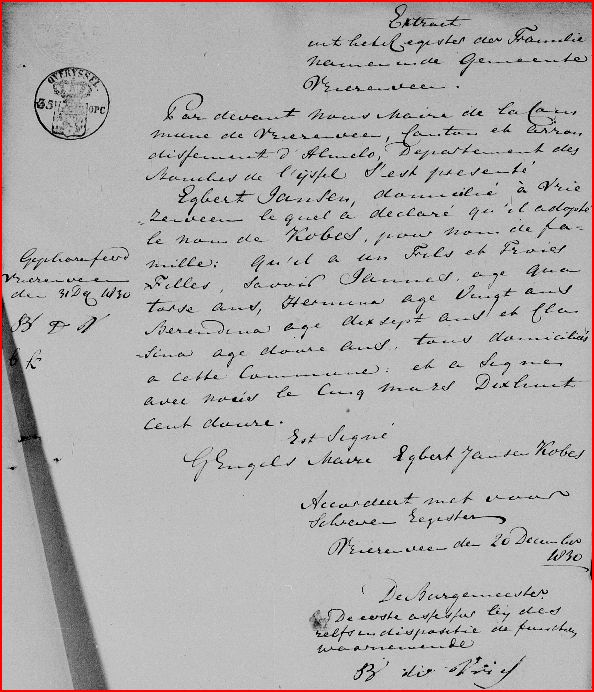 Extract
uit het Register der Familie
namen in de Gemeente
Vriezenveen.
OVERYSSEL
35 OPC
Par devant nous Maire de la Com
mune de Vriezenveen, Canton et Arron
dissement d'Almelo, Departement des
Bouches de l'yssel s'est presenté
Egbert Jansen, domicilié à Vrie
zenveen lequel a déclaré qu'il adopte
le nom de Kobes, pour nom de fa-
mille: qu'il a un Fils et Troies
Filles, savoir Jannes, age qua
torse ans, Hermina age Vingt ans
Berendina age dixsept ans et Cla
sina age douze ans, tous domiciliés
a cette Commune: et a Signe
avec nous le Cinq mars Dixhuit
cent douze.
Est Signé
G Engels Maire Egbert Jansen Kobes
Vriezenveen
den 31 Dec 1830
Accordeert met voor
schreven Register
Vriezenveen den 20 December
1830
De Burgemeester
De eerste assessor bij des
zelfs indispositie de functien
waarnemende